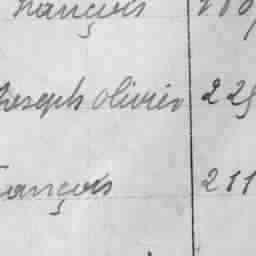 François
Joseph olivier 225
François 211